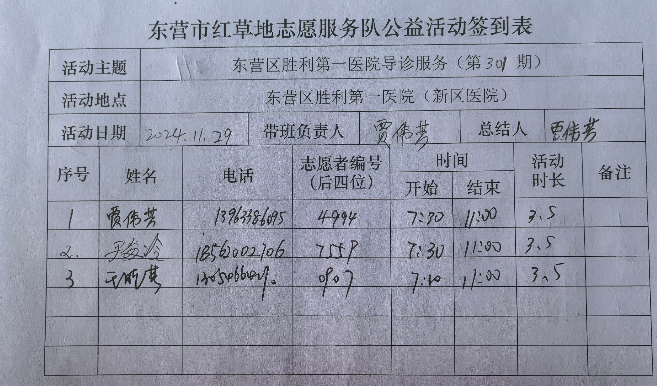 东营市红草地志愿服务队公益活动签到表
活动主题 东营区胜利第一医院导诊服务（第301期）
活动地点 东营区胜利第一医院（新区医院）
活动日期 2024.11.29 带班负责人 贾伟芳 总结人 贾伟芳
序号 姓名 电话 志愿者编号（后四位） 时间 开始 结束 活动时长 备注
1 贾伟芳 13963386095 4994 7:30 11:00 3.5
2. 18563002706 7559 7:30 11:00 3.5
3 0907 11:00 3.5